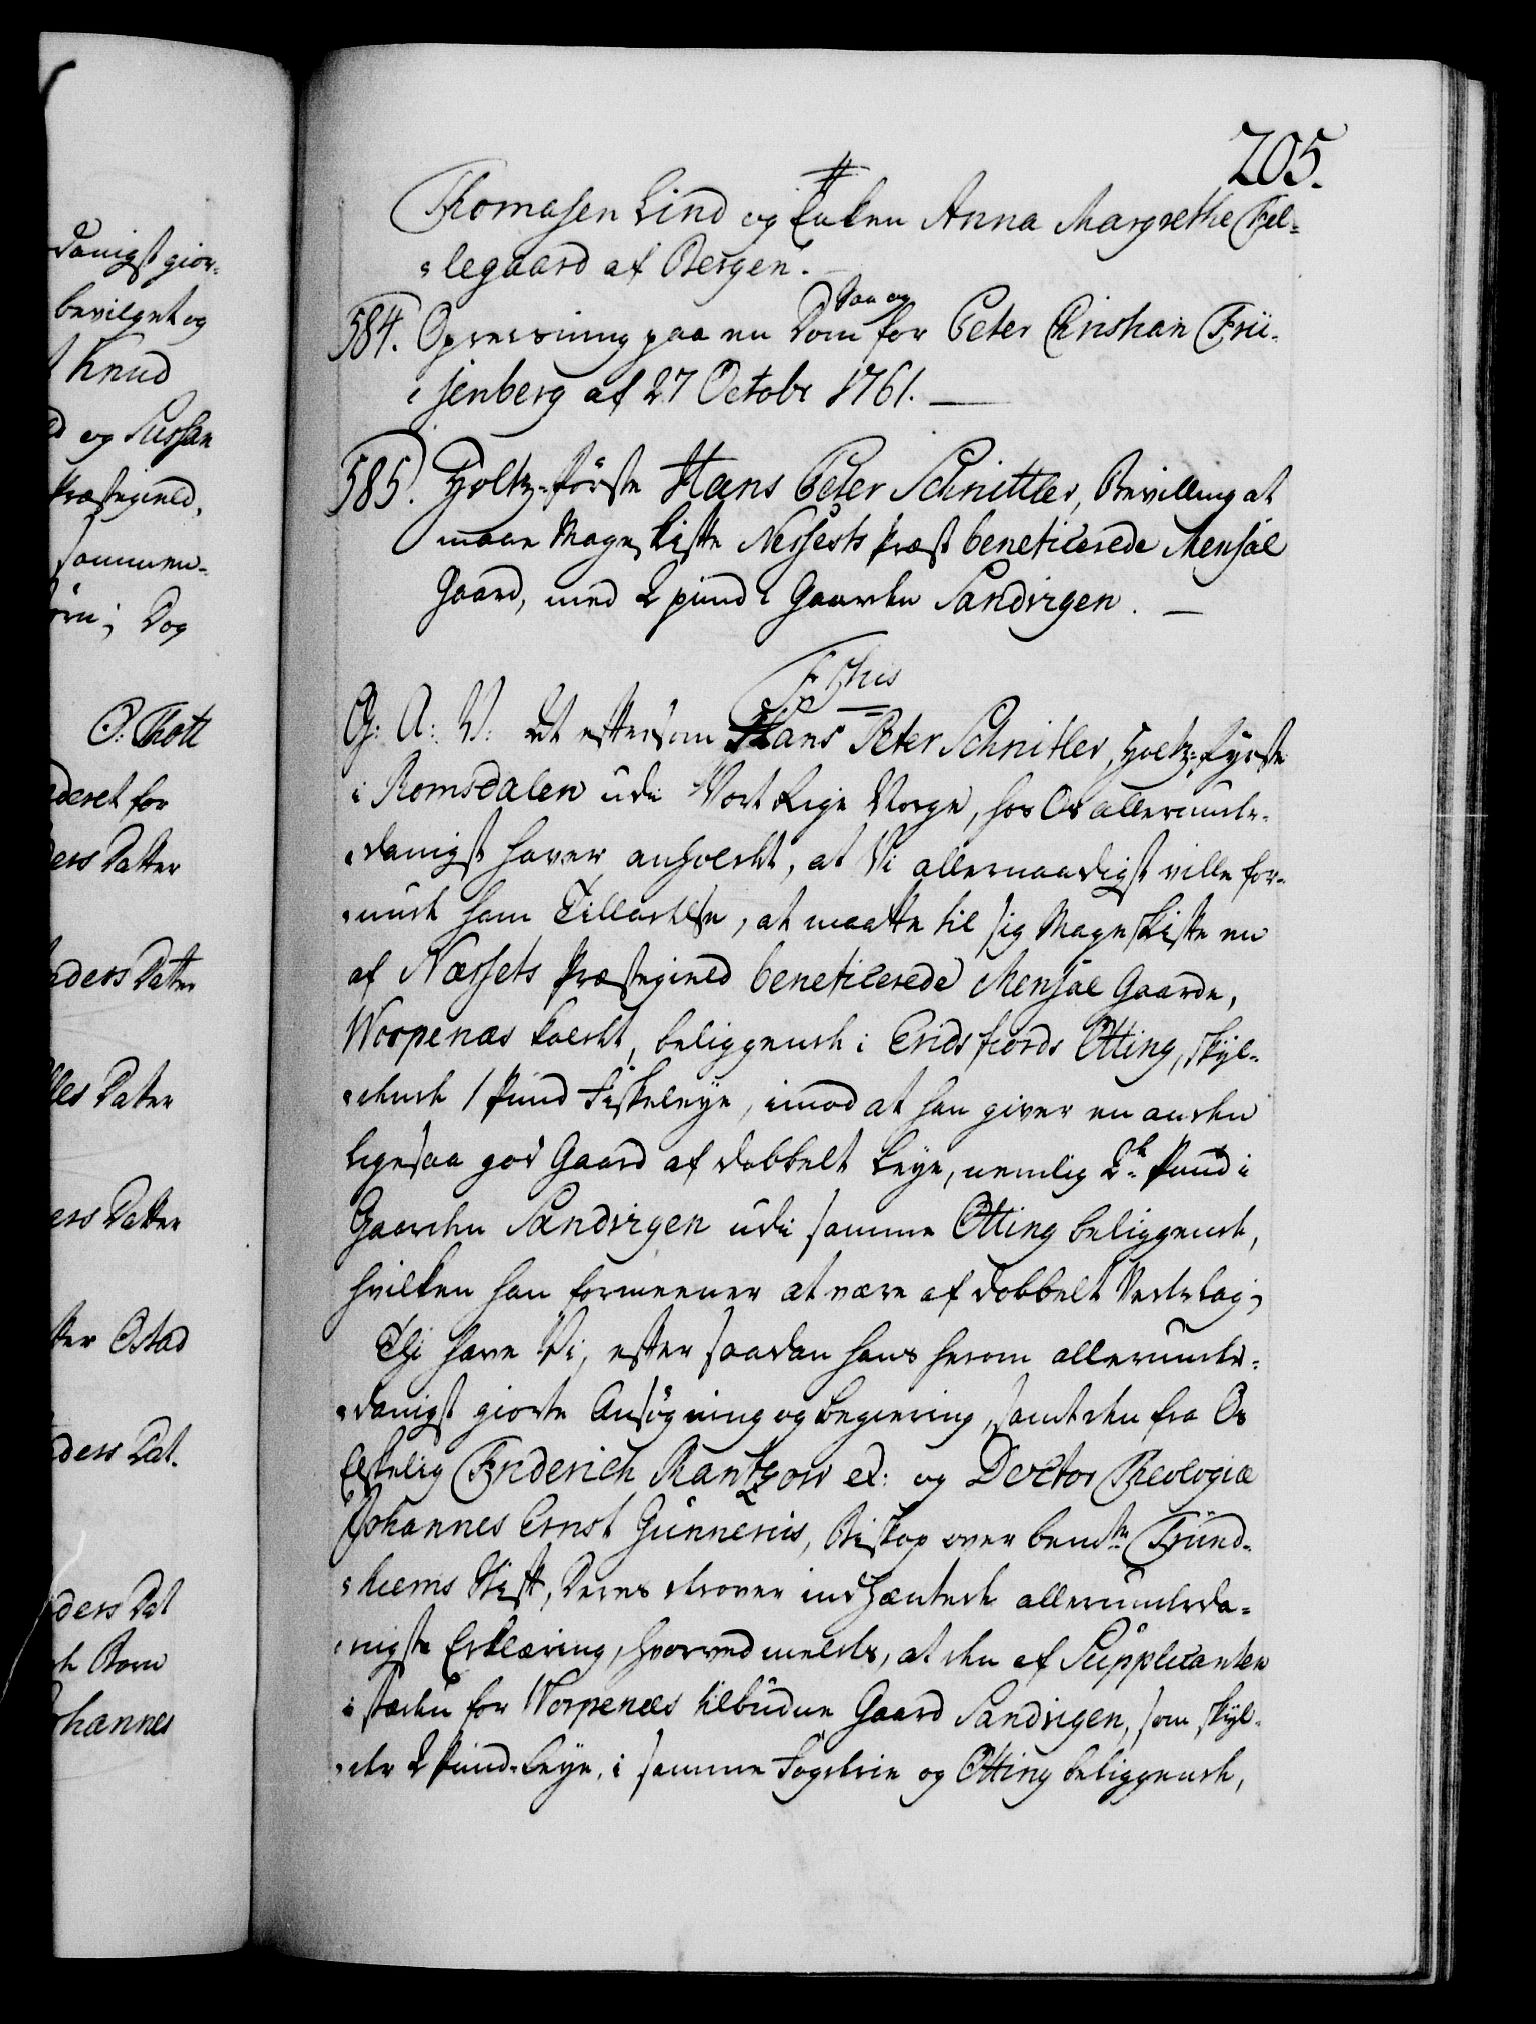 205.
Thomasen Lind og Enken Anna Margrethe Fiel-
legaard af Bergen.
584. Opreisning paa en Dom
for Peter Christian Frü-
senberg af 27 Octobr 1761.
585. Holtz-Förste Hans Peter Schnittler, Bevilling at
maae Mageskifte Nessets Præst beneficerede Mensal
Gaard, med 2 pund i Gaarden Sandvigen.
G: A: V: At eftersom Hans Peter Schnitler, Holtz-Fyrste
i Romsdalen udi Vort Rige Norge, hos Os allerunde-
danigst haver anholdt, at Vi allernaadigst ville for-
unde ham Tilladelse, at maatte til sig Mageskifte en
af Næssets Præstegield beneficerede Mensal Gaarde,
Worpenæs kaldt, beliggende i Eridsfiords Otting, skyl-
dende 1 Pund Fiskeleye, imod at han giver en anden
ligesaa god Gaard af dobbelt Leye, nemlig 2de Pund i
Gaarden Sandvigen udi samme Otting beliggende,
hvilken han formeener at være af dobbelt Vederlag;
Thi have Vi, efter saadan hans herom allerunde-
danigst giorte Ansøgning og begiering, samt den fra Os
Elskelig Friderich Rantzow et: og Doctor Theologiæ
Johannes Ernst Gunnerus, Biskop over bemte Trund-
hiems Stift, Deres derover indhæntede allerunderda-
nigste Erklæring, hvorved meldes, at den af Supplicanten
i stæden for Worpenæs tilbudne Gaard Sandvigen, som skyl-
der 2 Pund-Leye, i samme Fogderie og Otting beliggende,
danigst gior-
bevilget og
Knud
og Sussan
Præstegield,
sammen-
Dog
O: Thott
for
Datter
Datter
Datter
Datter
Ostad
Dat.
Dat
Born